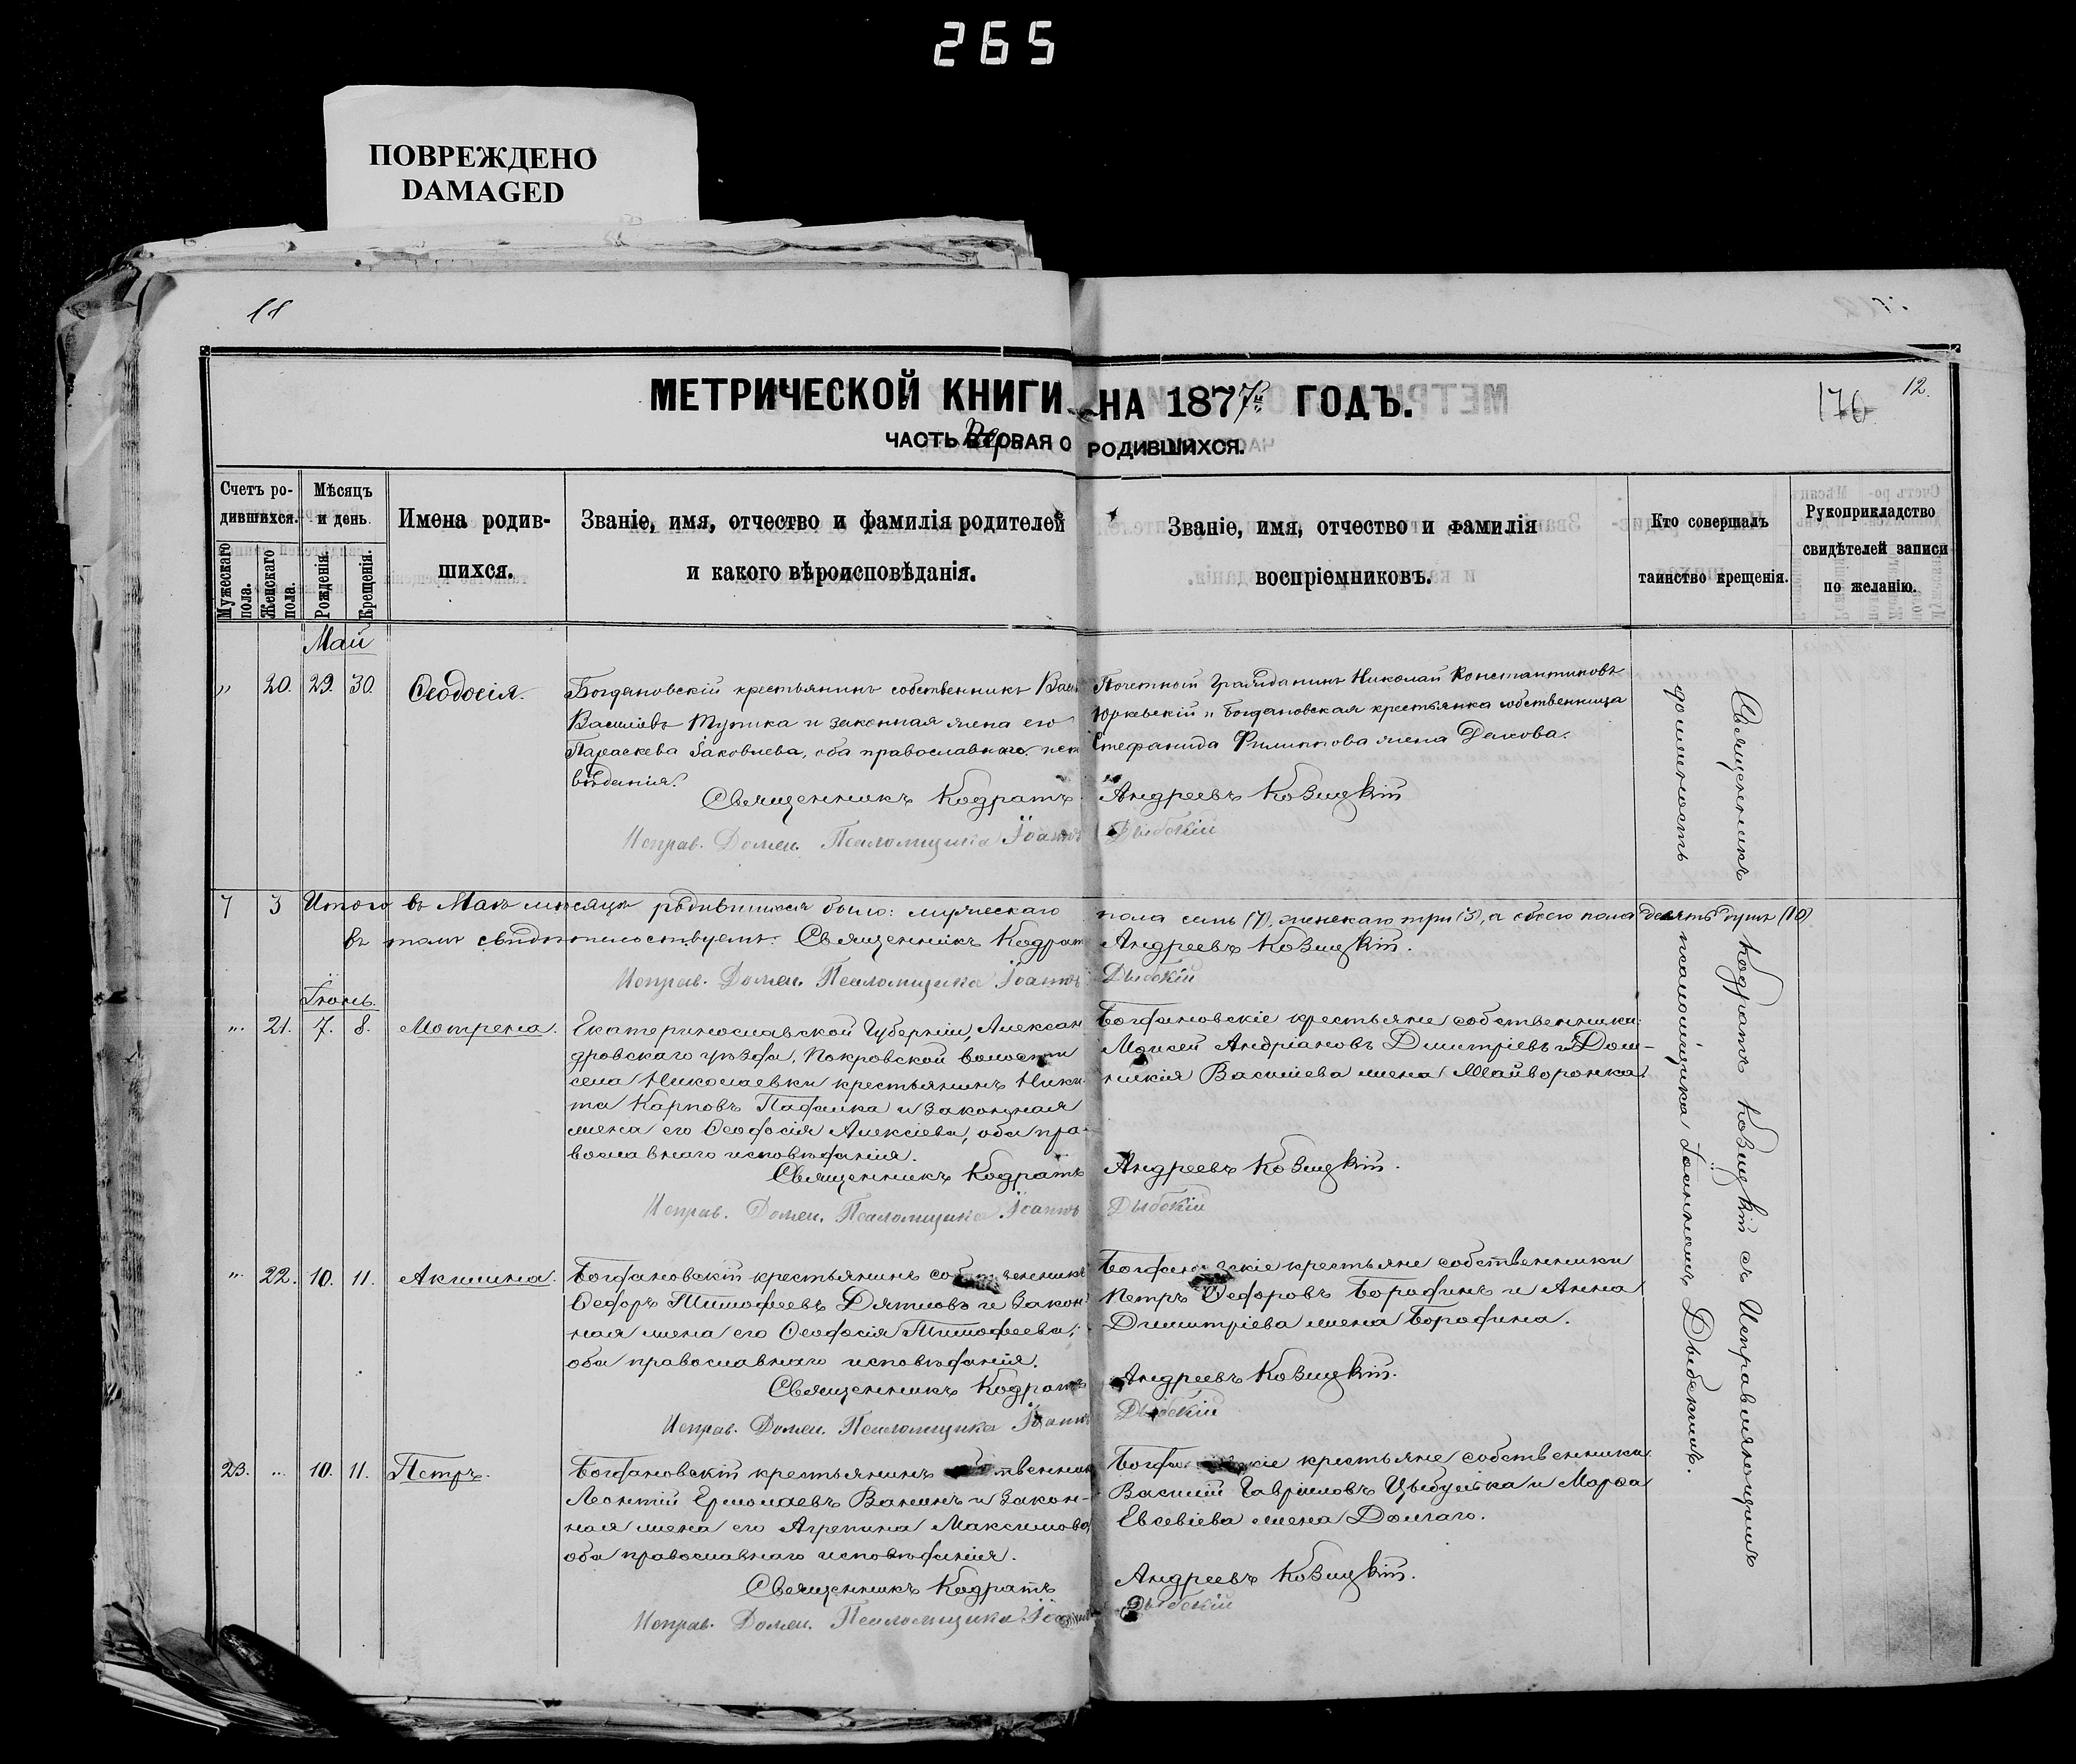 265
ПОВРЕЖДЕНО
DAMAGED
11
МЕТРИЧЕСКОЙ КНИГИ НА 1877й ГОДЪ.
170
12.
ЧАСТЬ Первая О РОДИВШИХСЯ.
Счетъ родившихся.
Мужескаго пола.
Женскаго пола.
Мѣсяцъ и день
Рожденія.
Крещенія.
Имена родив-
шихся.
Званіе, имя, отчество и фамилія родителей
и какого вѣроисповѣданія.
Званіе, имя, отчество и фамилія
воспріемниковъ.
Кто совершалъ
таинство крещенія.
Рукоприкладство
свидѣтелей записи
по желанію.
Май
" 20. 29. 30. Ѳеодосія.
Богдановскій крестьянинъ собственникъ
Васильевъ Тупика и законная жена его
Параскева Іаковлева, оба православнаго испо
вѣданія.
Священникъ Кодратъ
Исправ. Должн. Псаломщика Іоаннъ
Почетный Гражданинъ Николай Константиновъ
Юркевскій и Богдановская крестьянка собственница
Стефанида Филиппова жена Дакова.
Андреевъ Козицкій
Дыбскій
7 3 Итого въ Маѣ мѣсяцѣ родившихся было: мужескаго пола семь (7), женскаго три (3), а обоего пола десять душъ (10)
въ томъ свидѣтельствуемъ: Священникъ Кодратъ Андреевъ Козицкій.
Исправ. Должн. Псаломщика Іоаннъ Дыбскій
Іюнь.
" 21. 7. 8. Мотрена.
Екатеринославской Губерніи, Алексан
дровскаго уѣзда, Покровской волости
села Николаевки крестьянинъ Ники
та Карповъ Падалка и законная
жена его Ѳеодосія Алексіева, оба пра-
вославнаго исповѣданія.
Священникъ Кодратъ
Исправ. Должн. Псаломщика Іоаннъ
Богдановскіе крестьяне собственники:
Моисей Андріановъ Димитріевъ и Дом-
никія Васильева жена Шайворонка.
Андреевъ Козицкій.
Дыбскій
" 22. 10. 11. Акилина.
Богдановскій крестьянинъ собственникъ
Ѳедоръ Тимофеевъ Дятловъ и закон-
ная жена его Ѳеодосія Тимофеева,
оба православнаго исповѣданія.
Священникъ Кодратъ
Исправ. Должн. Псаломщика Іоаннъ
Богдановскіе крестьяне собственники
Петръ Ѳедоровъ Бородинъ и Анна
Димитріева жена Бородина.
Андреевъ Козицкій.
Дыбскій
23. " 10. 11. Петръ.
Богдановскій крестьянинъ собственникъ
Леонтій Ермолаевъ Ванинъ и закон-
ная жена его Агрепина Максимова,
оба православнаго исповѣданія.
Священникъ Кодратъ
Исправ. Должн. Псаломщика
Богдановскіе крестьяне собственники
Василій Гавриловъ Цыбулька и Марѳа
Евсевіева жена Долгаго.
Андреевъ Козицкій.
Дыбскій
Священникъ Кодратъ Козицкій съ Исправляющимъ
должность псаломщика Іоанномъ Дыбскимъ.